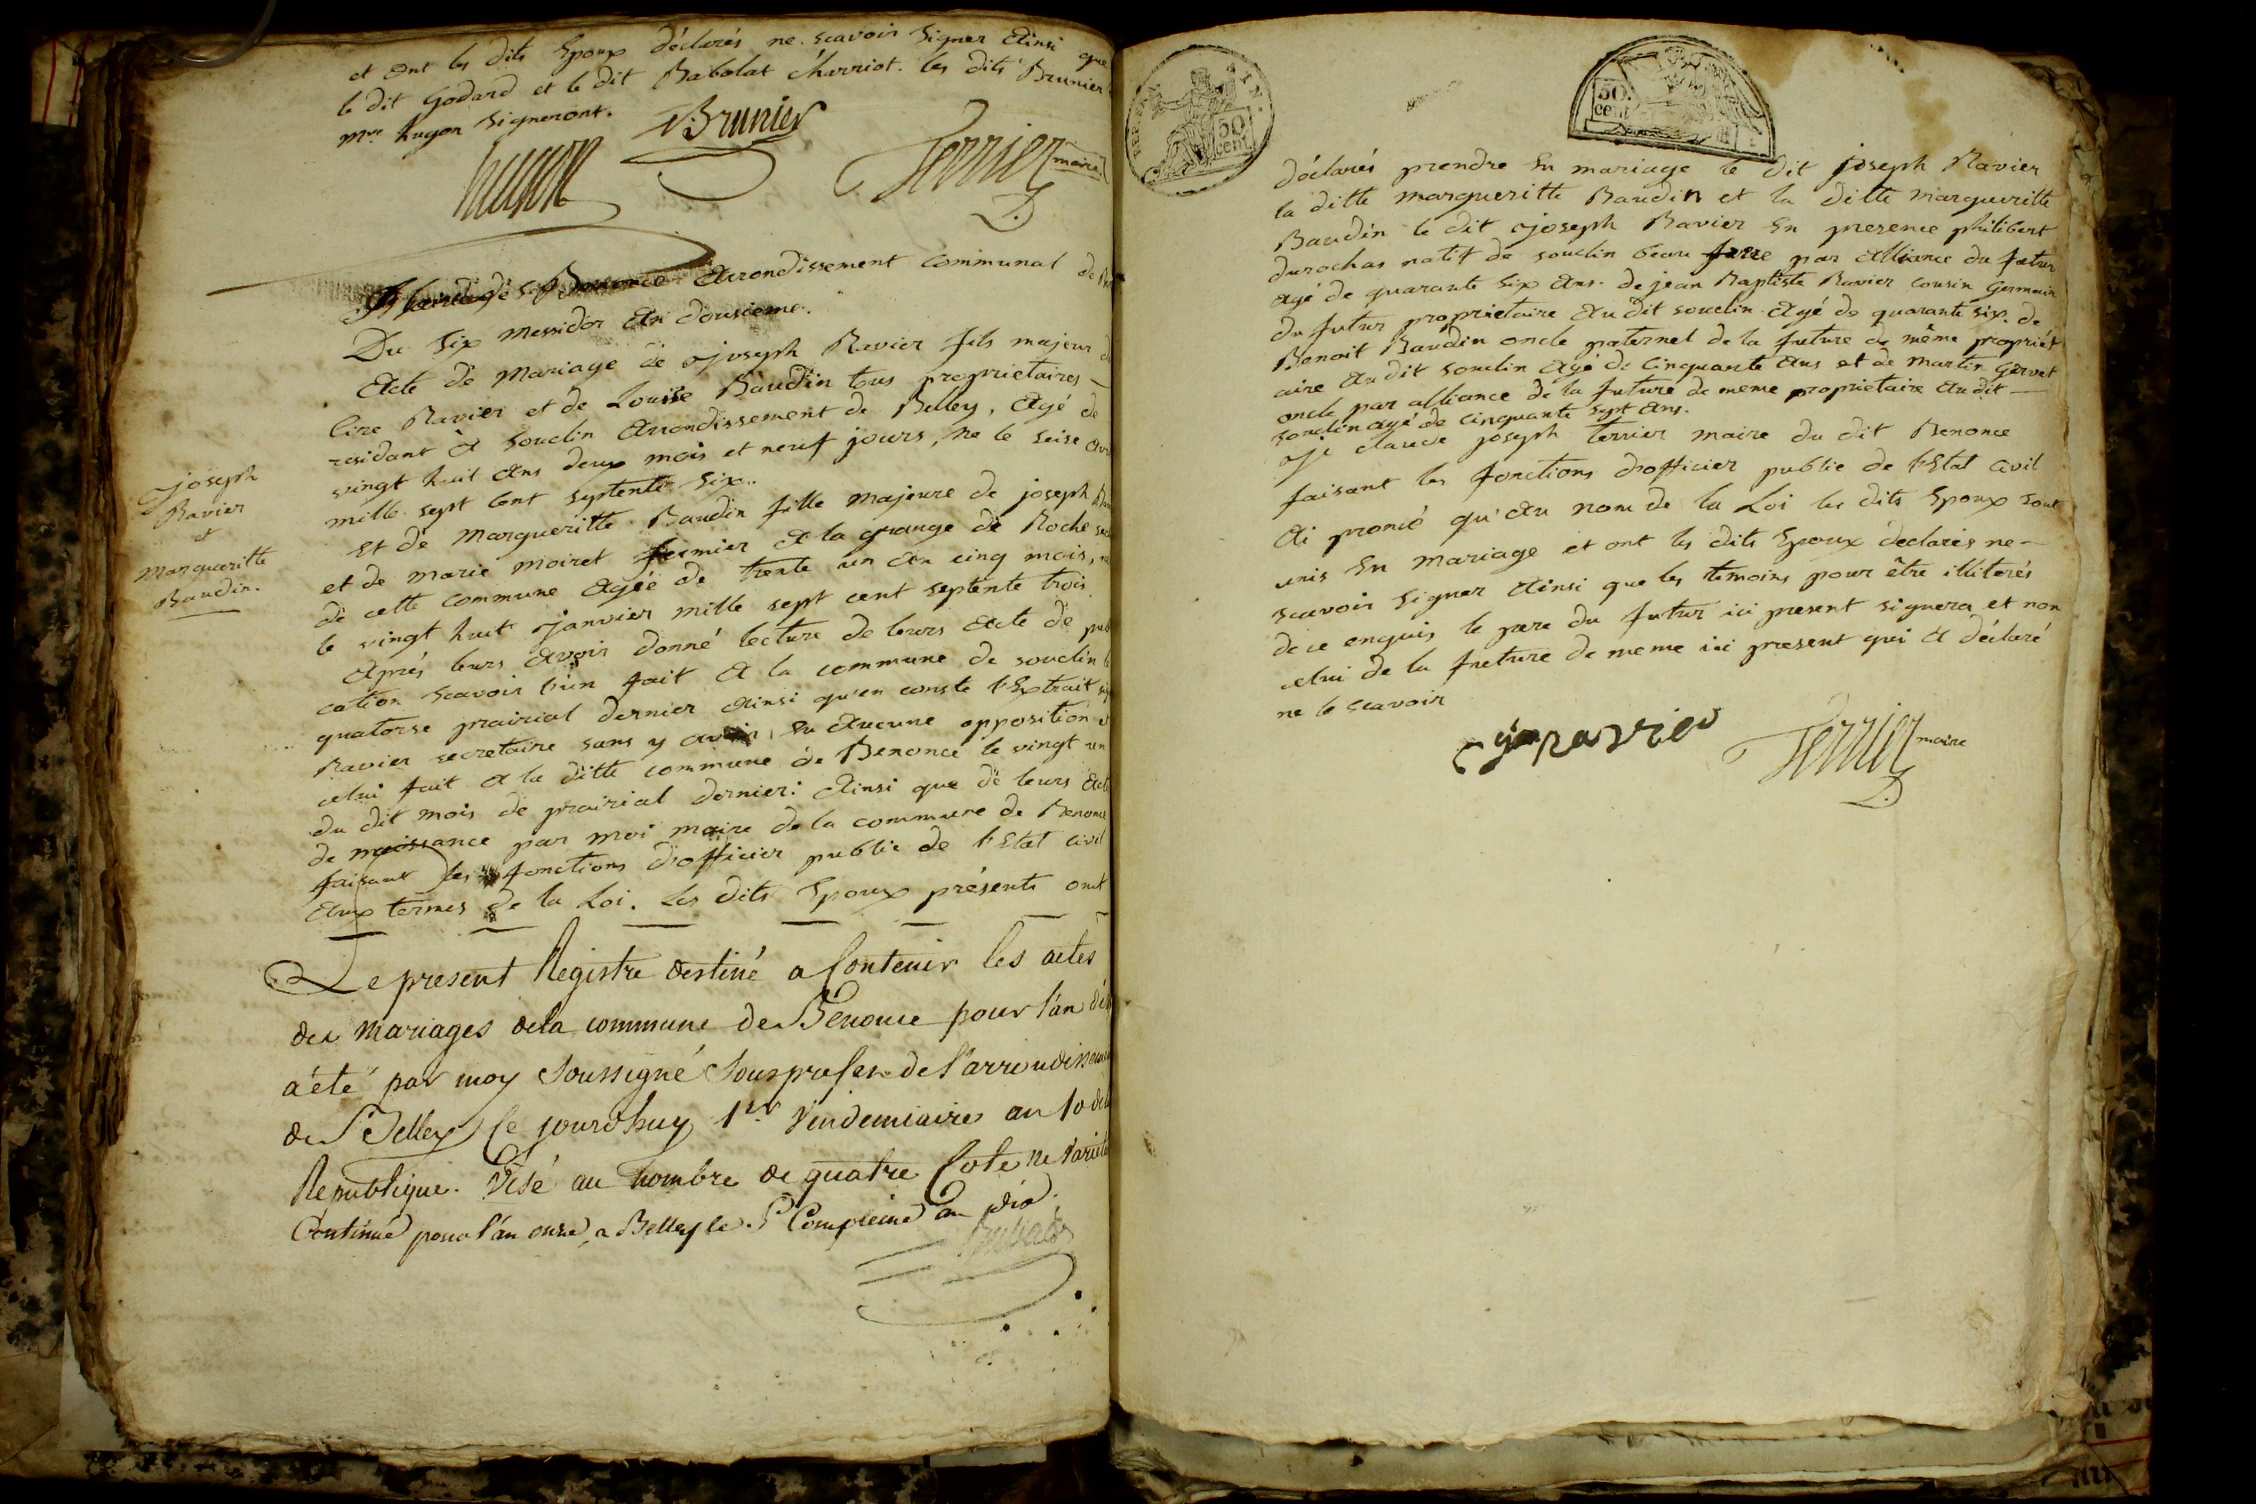 et ont les dits Epoux déclarés ne scavoir Signer Ainsi que
le dit Godard et le dit Babolat Charriot. les dits Brunier
hugon Signeront.
hugon
Brunier
Terrier maire
Arondissement Communal de
Du Six Messidor An dousieme.
Acte de Mariage de joseph Ravier fils majeur
Ravier et de Louise Baudin tous proprietaires
residant à Souclin Arrondissement de Belley, Agé de
vingt huit Ans deux mois et neuf jours, ne le Seise
mille sept Cent Septente Six.
joseph
Ravier
et
Margueritte
Baudin.
et de Margueritte Baudin fille Majeure de joseph
et de marie moiret fermier A la grange de Roche
de cette commune Agée de trente un An cinq mois,
le vingt huit janvier mille sept cent septente trois
Aprés leurs Avoir donné lecture de leurs Acte de
cation Scavoir l'un fait A la commune de souclin
quatorse prairial dernier Ainsi qu'en conste l'Extrait
Ravier secretaire sans y Aucune opposition
celui fait A la ditte commune de Benonce le vingt un
du dit mois de prairial dernier: Ainsi que de leurs
de naissance par moi maire de la commune de Benonce
faisant les fonctions d'officier public de l'Etat civil
Aux termes de la Loi. Les dits Epoux présents ont
Le present Registre destiné a Contenir les actes
des mariages dela commune de Benonce pour l'an
a été par moy Soussigné Sousprefet de l'arrondissement
de Belley Ce jourdhuy 1er Vendemiaire an 10
Republique. Visé au nombre de quatre
Continué pour l'an onse, a Belley le
50
cent
50.
cent
déclarés prendre En mariage le dit joseph Ravier
la ditte margueritte Baudin et la ditte margueritte
Baudin le dit joseph Ravier En presence philibert
durochas natif de souclin beau frere par Alliance du futur
Agé de quarante Six Ans. de jean Baptiste Ravier cousin Germain
du futur proprietaire Au dit souclin Agé de quarante Six. de
Benoit Baudin oncle paternel de la future de même propriét
aire Au dit souclin Agé de Cinquante Ans et de Martin Gervet
oncle par alliance de la future de meme proprietaire Au dit
souclin agé de cinquante sept Ans.
je claude joseph Terrier maire du dit Benonce
faisant les fonctions d'officier public de l'Etat civil
Ai proncé qu'Au nom de la Loi les dits Epoux sont
unis En mariage et ont les dits Epoux déclarés ne
scavoir Signer Ainsi que les temoins pour être illiterés
de ce enquis le pere du futur ici present signera et non
celui de la future de meme ici present qui A déclaré
ne le scavoir
Terrier maire